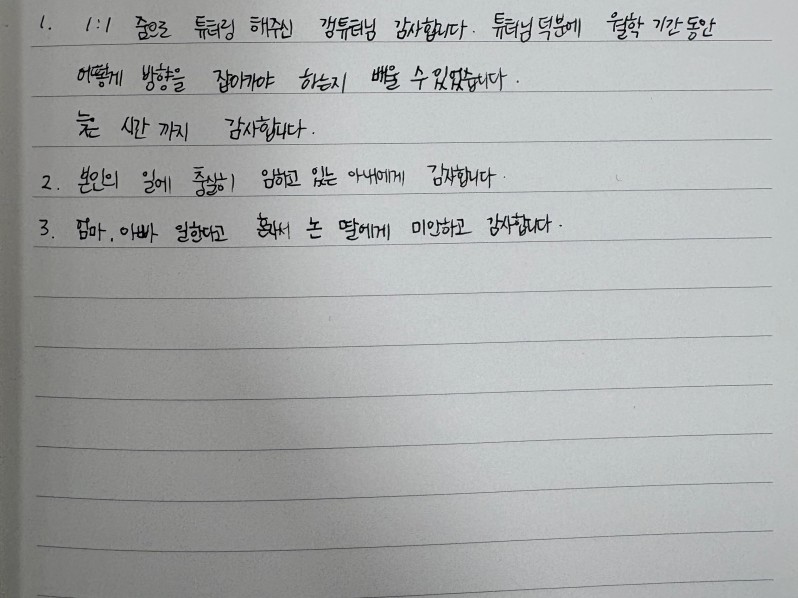 1. 1:1 줌으로 튜터링 해주신 갱튜터님 감사합니다. 튜터님 덕분에 월학 기간 동안
어떻게 방향을 잡아가야 하는지 배울 수 있었습니다.
늦은 시간 까지 감사합니다.
2. 본인의 일에 충실히 임하고 있는 아내에게 감사합니다.
3. 엄마, 아빠 일한다고 혼자서 논 딸에게 미안하고 감사합니다.